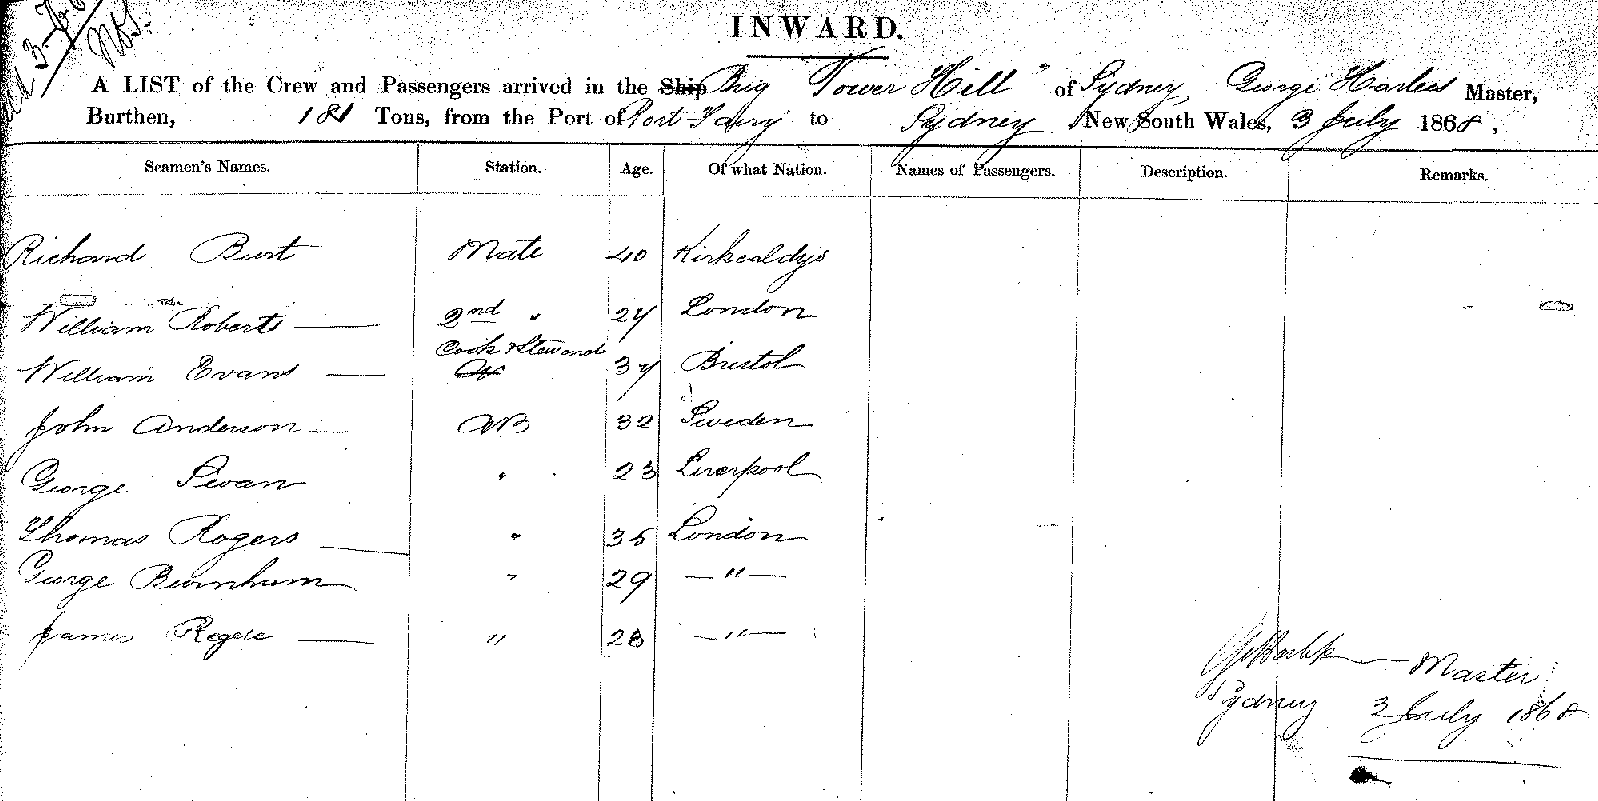 INWARD.
A LIST of the Crew and Passengers arrived in the Ship Brig "Tower Hill" of Sydney, George Master,
Burthen, 181 Tons, from the Port of Port Fairy to Sydney New South Wales, 3 July 1868.
Seamen's Names. Station. Age. Of what Nation. Names of Passengers. Description. Remarks.
Richard Burt Mate 40 Kirkcaldy
William Roberts 2nd " 24 London
William Evans Cook & Steward 34 Bristol
John Anderson AB 32 Sweden
George Swan " 23 Liverpool
Thomas Rogers " 35 London
George Burnham " 29 — " —
James Rogers " 28 — " —
Master
Sydney 3 July 1868